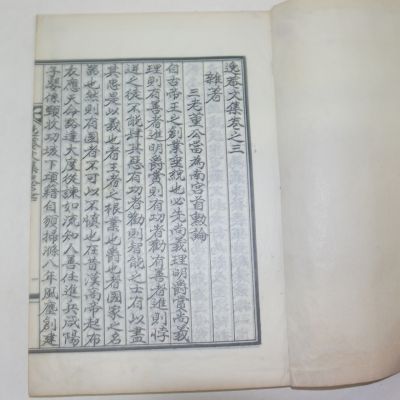 逸菴文集卷之三
雜著
三老董公當爲南宮首勳論
自古帝王之創業垂統也必先尚義理明爵賞尚義
理則有善者進明爵賞則有功者勸有善者進則悖
逆之徒不能肆其惡有功者勸則智能之士有以盡
其忠是以義也者王者之根業也爵也者國家之名
器也然則有國者不可以不慎也在昔漢高帝起布
衣應天命豁達大度從諫如流知人善任進兵咸陽
子嬰係頸狀功垓下項籍自頸掃滌八年風塵創建